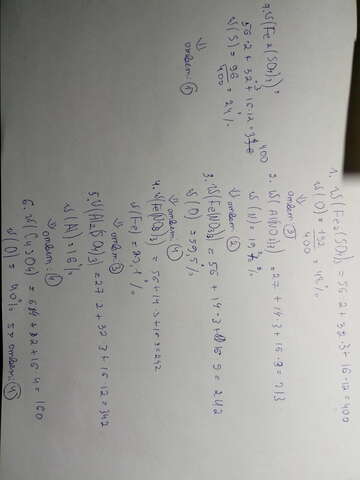 1. ω(Fe2(SO4)3) = 56·2 + 32·3 + 16·12 = 400
ω(O) = 192/400 = 48%
⇓
ответ: ③
2. ω(Al(NO3)3) = 27 + 14·3 + 16·9 = 213
ω(N) = 19,7%
⇓
ответ: ②
3. ω(Fe(NO3)3) = 56 + 14·3 + 16·9 = 242
ω(O) = 59,5%
⇓
ответ: ④
4. ω(Fe(NO3)3) = 56 + 14·3 + 16·9 = 242
ω(Fe) = 23,1%
⇓
ответ: ③
5. ω(Al2(SO4)3) = 27·2 + 32·3 + 16·12 = 342
ω(Al) = 16%
⇓
ответ: ④
6. ω(CuSO4) = 64 + 32 + 16·4 = 160
ω(O) = 40% => ответ: ④
7. ω(Fe2(SO4)3) =
56·2 + 32·3 + 16·12 = 400
ω(S) = 96/400 = 24%
⇓
ответ: